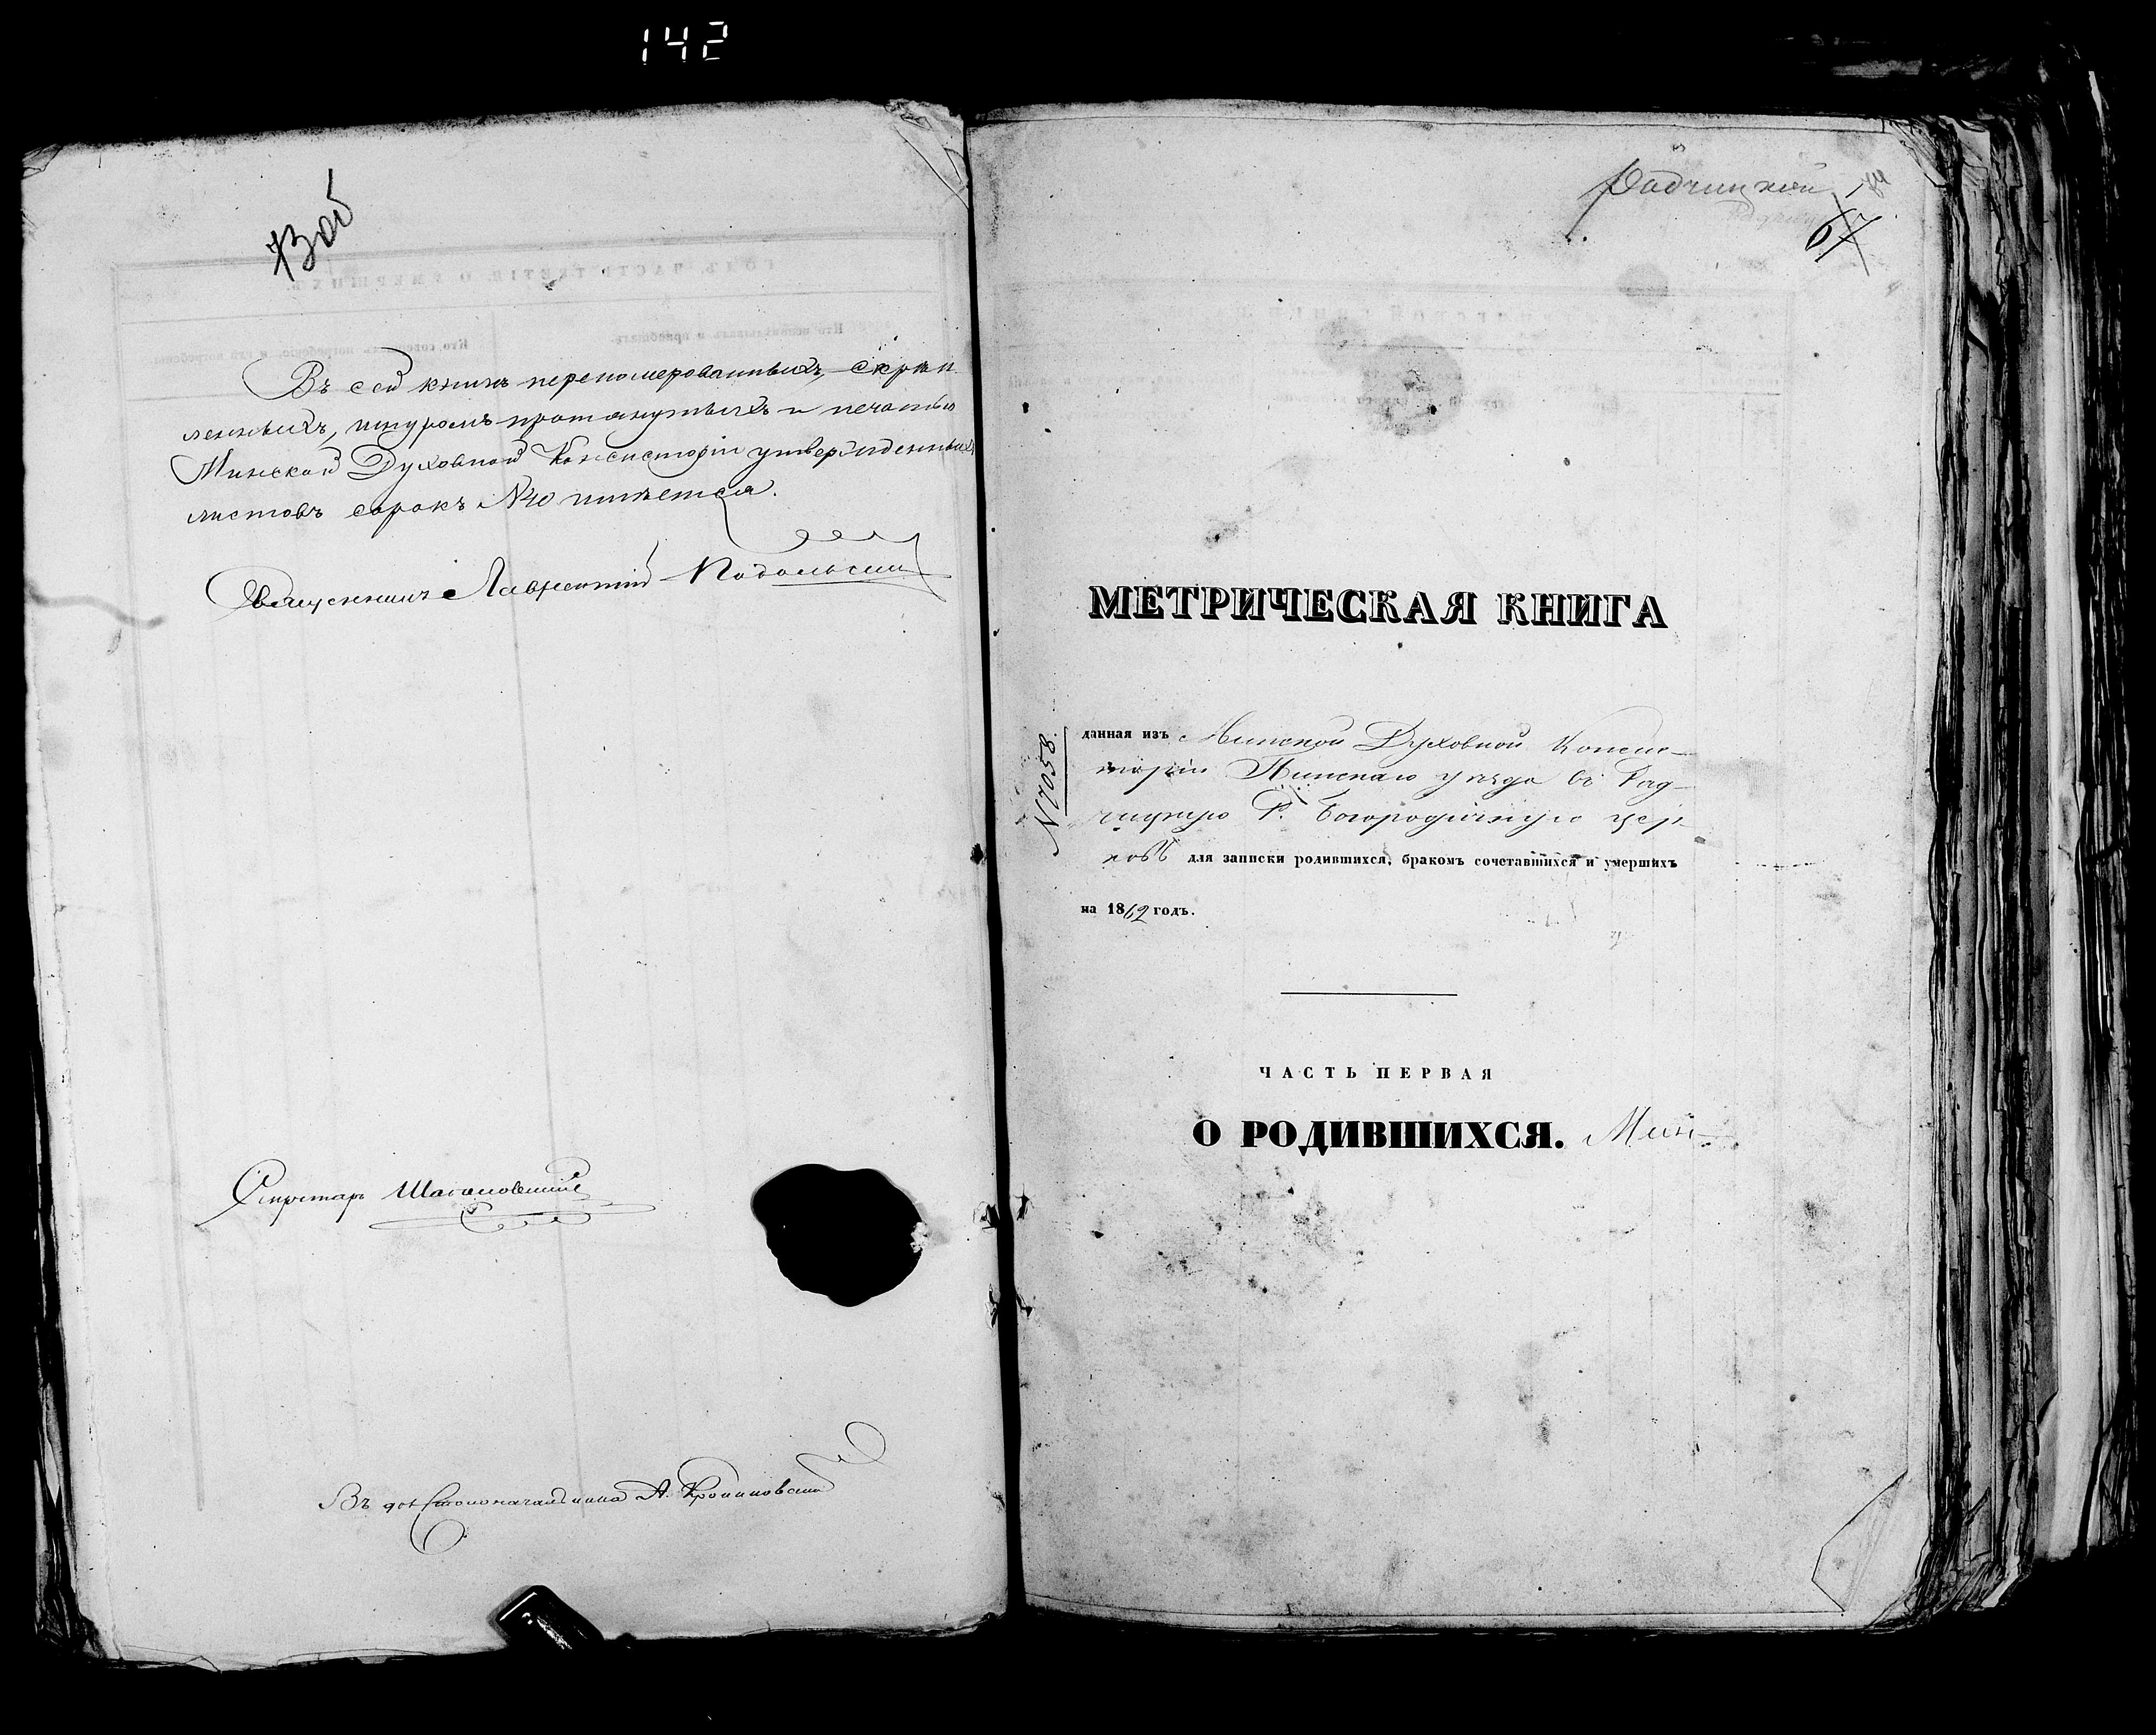 142
73 об
Въ сей книгѣ перепомерованныхъ, скрѣп
ленныхъ, шнуромъ протянутыхъ и печатью
Минской Духовной Консисторіи утвержденныхъ
листовъ сорокъ №40 имѣется.
Священникъ Лаврентій Подольскій
Секретарь
Въ дол. Столоначальника А.
Радчицкой
67
МЕТРИЧЕСКАЯ КНИГА
N 7058.
данная изъ Минской Духовной Консис-
торіи Пинскаго уѣзда въ Рад-
чицкую Р. Богородичную цер-
ковь для записки родившихся, бракомъ сочетавшихся и умершихъ
на 1862 годъ.
ЧАСТЬ ПЕРВАЯ
О РОДИВШИХСЯ. Мин-